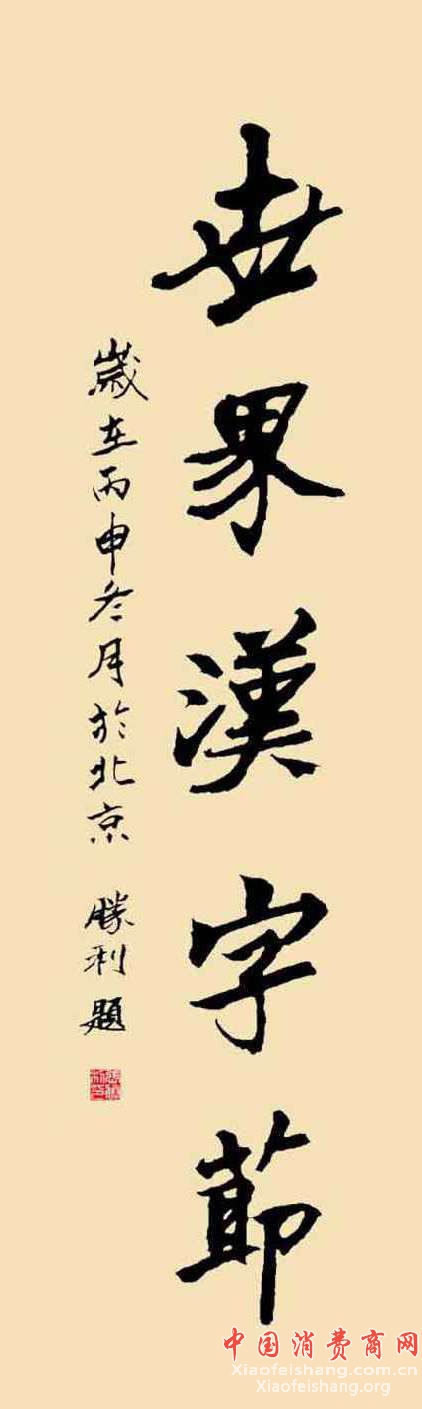 世界漢字節
歲在丙申冬月於北京 勝利題
中国消费商网
Xiaofeishang.com.cn
Xiaofeishang.org